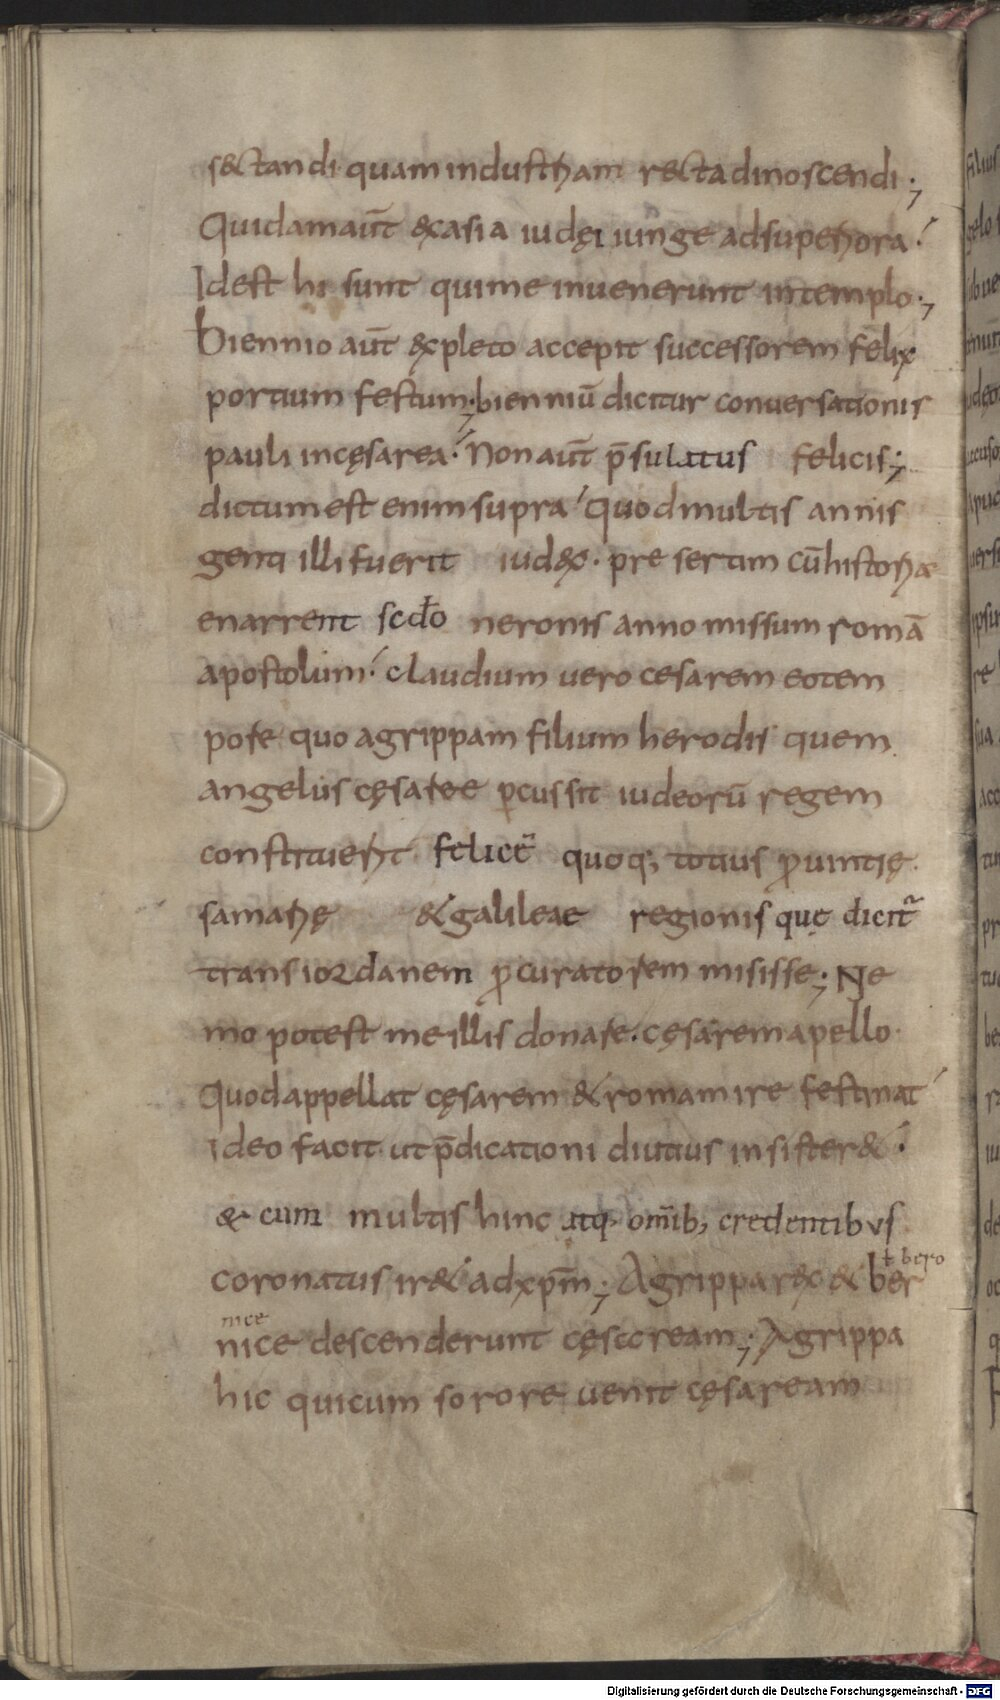 s&tandi quam industriam recta dinoscendi ;
Quidam aūt &x asia iudęi iunge ad superiora ;
Idest hi sunt qui me inuenerunt in templo ;
Biennio aūt &xpleto accepit successorem felix
portium festum ; bienniū dicitur conuersationis
pauli in cęsarea ; Non aūt p̄sulatus felicis ;
dictum est enim supra quod multis annis
genti illi fuerit iudex . pre sertim cū historiae
enarrent scdo neronis anno missum romā
apostolum ; claudium vero cesarem eotem
pore quo agrippam filium herodis quem
angelus cęsareae pcussit iudeorū regem
constituerit felicē quoq; totius ꝓuintię
samarię & galileae regionis quę dicit᷑
trans iordanem ꝓcuratorem misisse ; Ne
mo potest me illis donare . cęsarem apello
Quod appellat cęsarem & romam ire festinat
ideo facit ut p̄dicationi diutius insister& ;
& cum multis hinc atq; omīb; credentibus
coronatus ir& ad xpm̄ ; Agrippa rex & ber
ł bero
nice
nice descenderunt cęsaream ; Agrippa
hic qui cum sorore uenit cęsaream
Digitalisierung gefördert durch die Deutsche Forschungsgemeinschaft - DFG